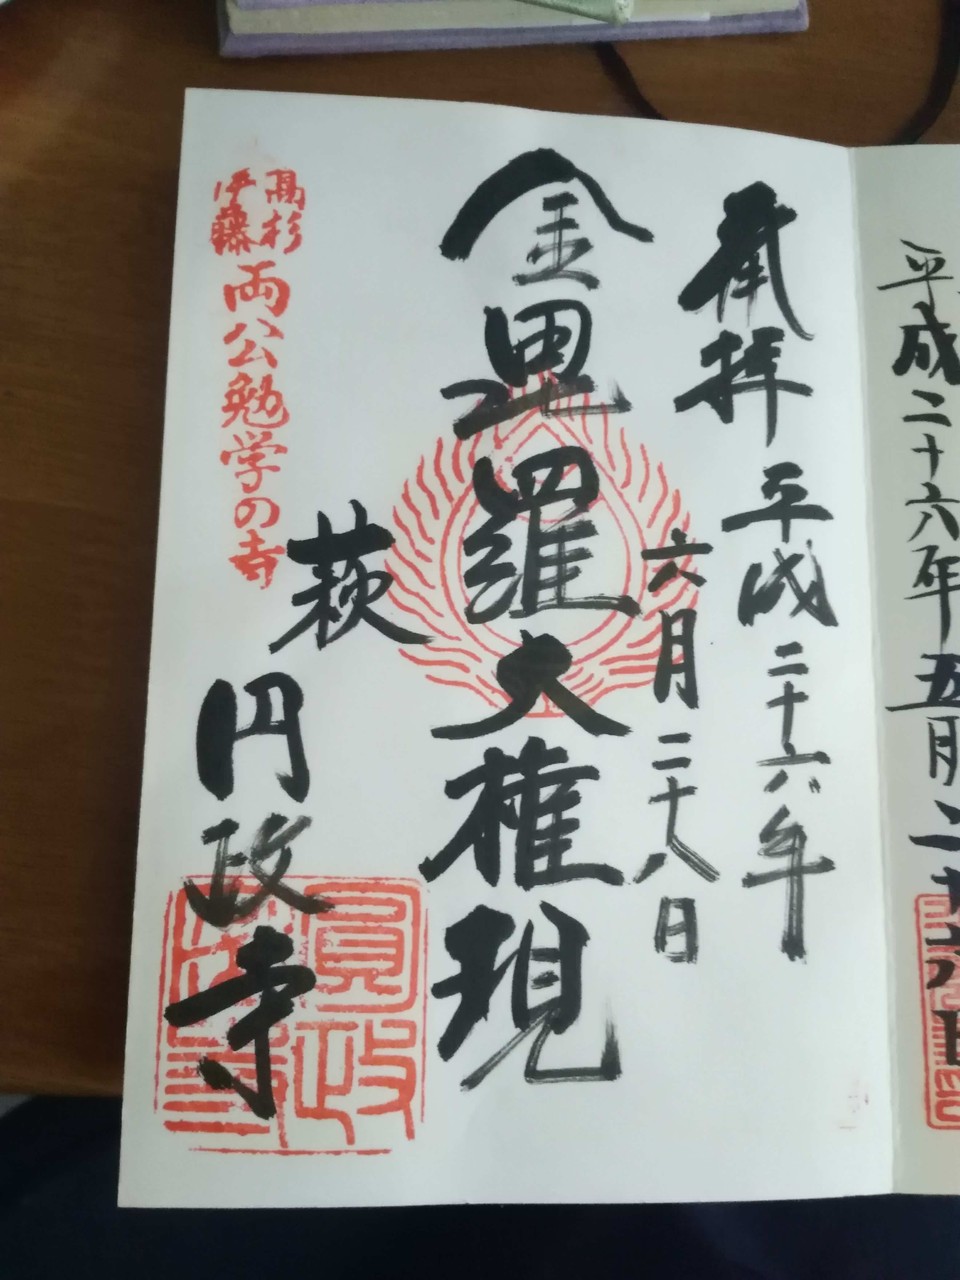 平成二十六年五月二十六日
奉拝 平成二十六年
六月二十八日
金毘羅大権現
萩 円政寺
高杉
伊藤
両公勉学の寺